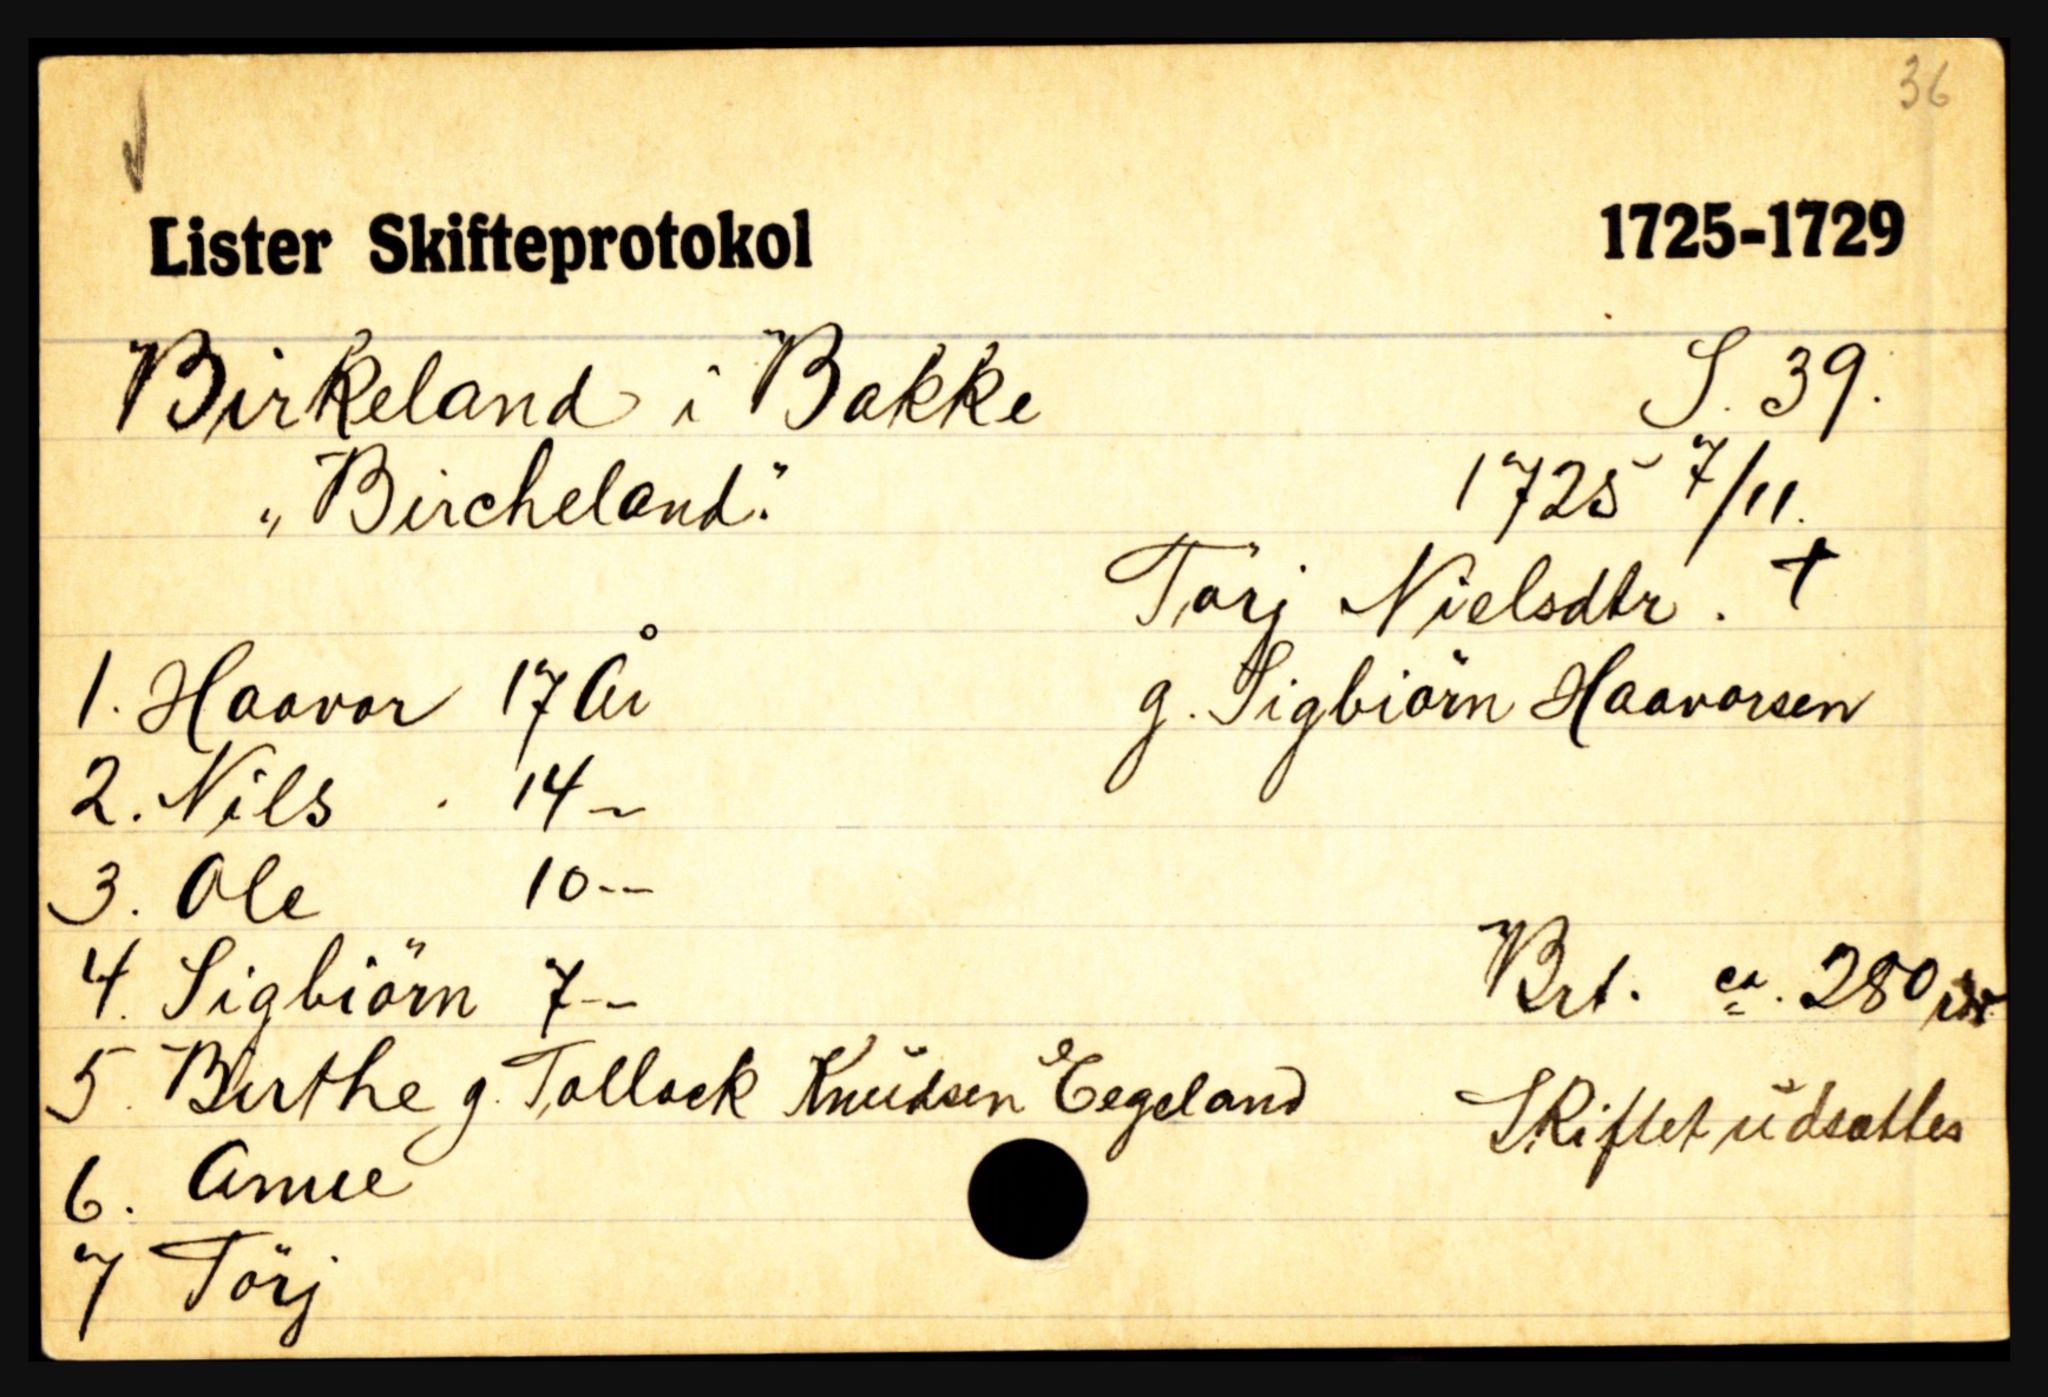 36
Lister Skifteprotokol 1725-1729
Birkeland i Bakke S. 39.
„Bircheland." 1725 7/11.
Törj Nielsdtr. +
1. Haavor 17 År g. Sigbiörn Haavorsen
2. Nils 14 –
3. Ole 10 --
4. Sigbiörn 7 -- Brt. ca. 280
5. Birthe g. Tollack Knudsen Eegeland Skiftet udsattes
6. Anne
7 Törj